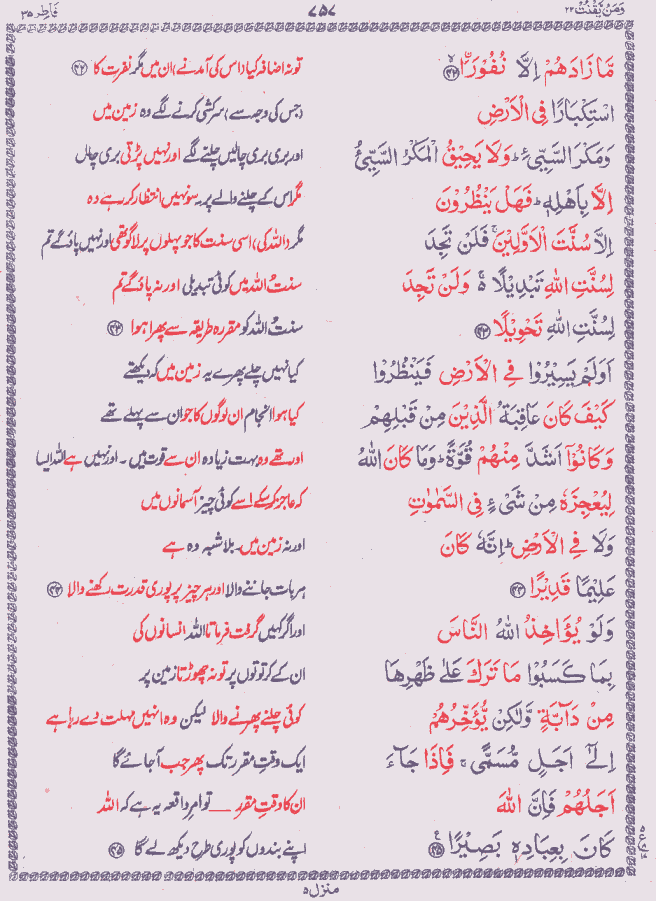 وَمَنْ يَّقْنُتْ ٢٢
٧٥٧
فَاطِر ٣٥
مَّا زَادَهُمْ اِلَّا نُفُوْرَاۨ ﴿٤٢﴾
تو نہ اضافہ کیا (اس کی آمد نے) ان میں مگر نفرت کا ﴿٤٢﴾
اسْتِكْبَارًا فِي الْاَرْضِ
(جس کی وجہ سے) سرکشی کرنے لگے وہ زمین میں
وَمَكْرَ السَّيِّئِ ؕ وَلَا يَحِيْقُ الْمَكْرُ السَّيِّئُ
اور بری بری چالیں چلنے لگے اور نہیں پڑتی بری چال
اِلَّا بِاَهْلِهٖ ؕ فَهَلْ يَنْظُرُوْنَ
مگر اس کے چلنے والے پر۔ سو نہیں انتظار کر رہے وہ
اِلَّا سُنَّتَ الْاَوَّلِيْنَ ۚ فَلَنْ تَجِدَ
مگر (اللہ کی) اسی سنت کا جو پہلوں پر لاگو تھی اور نہیں پاؤ گے تم
لِسُنَّتِ اللهِ تَبْدِيْلًا ۚ وَلَنْ تَجِدَ
سنت اللہ میں کوئی تبدیلی اور نہ پاؤ گے تم
لِسُنَّتِ اللهِ تَحْوِيْلًا ﴿٤٣﴾
سنت اللہ کو مقررہ طریقہ سے پھرا ہوا ﴿٤٣﴾
اَوَلَمْ يَسِيْرُوْا فِي الْاَرْضِ فَيَنْظُرُوْا
کیا نہیں چلے پھرے یہ زمین میں کہ دیکھتے
كَيْفَ كَانَ عَاقِبَةُ الَّذِيْنَ مِنْ قَبْلِهِمْ
کیا ہوا انجام ان لوگوں کا جو ان سے پہلے تھے
وَكَانُوْٓا اَشَدَّ مِنْهُمْ قُوَّةً ؕ وَمَا كَانَ اللهُ
اور تھے وہ بہت زیادہ ان سے قوت میں۔ اور نہیں ہے اللہ ایسا
لِيُعْجِزَهٗ مِنْ شَىْءٍ فِي السَّمٰوٰتِ
کہ عاجز کر سکے اسے کوئی چیز آسمانوں میں
وَلَا فِي الْاَرْضِ ؕ اِنَّهٗ كَانَ
اور نہ زمین میں۔ بلاشبہ وہ ہے
عَلِيْمًا قَدِيْرًا ﴿٤٤﴾
ہر بات جاننے والا اور ہر چیز پر پوری قدرت رکھنے والا ﴿٤٤﴾
وَلَوْ يُؤَاخِذُ اللهُ النَّاسَ
اور اگر کہیں گرفت فرماتا اللہ انسانوں کی
بِمَا كَسَبُوْا مَا تَرَكَ عَلٰى ظَهْرِهَا
ان کے کرتوتوں پر تو نہ چھوڑتا زمین پر
مِنْ دَآبَّةٍ وَّلٰكِنْ يُّؤَخِّرُهُمْ
کوئی چلنے پھرنے والا لیکن وہ انہیں مہلت دے رہا ہے
اِلٰٓى اَجَلٍ مُّسَمًّى ۚ فَاِذَا جَآءَ
ایک وقت مقرر تک پھر جب آ جائے گا
اَجَلُهُمْ فَاِنَّ اللهَ
ان کا وقت مقرر ـــ تو امر واقعہ یہ ہے کہ اللہ
كَانَ بِعِبَادِهٖ بَصِيْرًا ﴿٤٥﴾
اپنے بندوں کو پوری طرح دیکھ لے گا ﴿٤٥﴾
منزل ٥